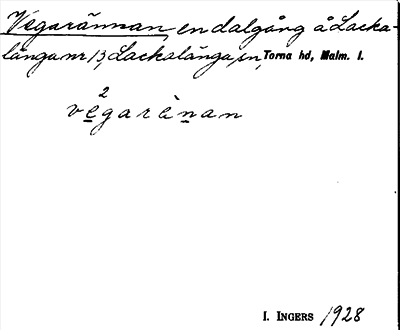 Vegarännan, en dalgång å Lacka-
länga nr 13, Lackalänga sn, Torna hd, Malm. l.
2
vegarènan
I. INGERS 1928